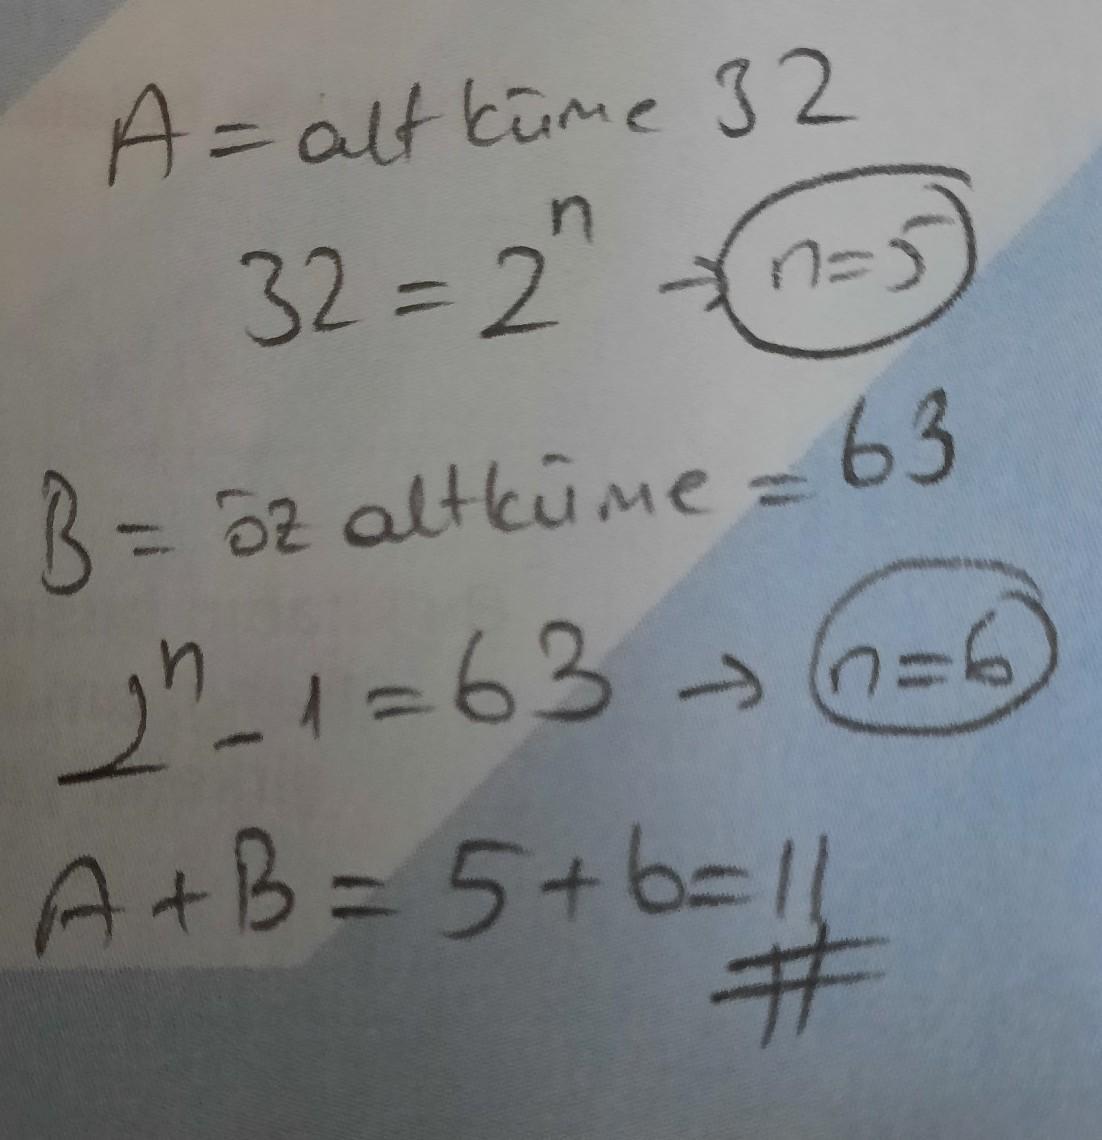 A = altküme 32
32 = 2ⁿ → n=5
B = öz altküme = 63
2ⁿ - 1 = 63 → n=6
A + B = 5 + 6 = 11